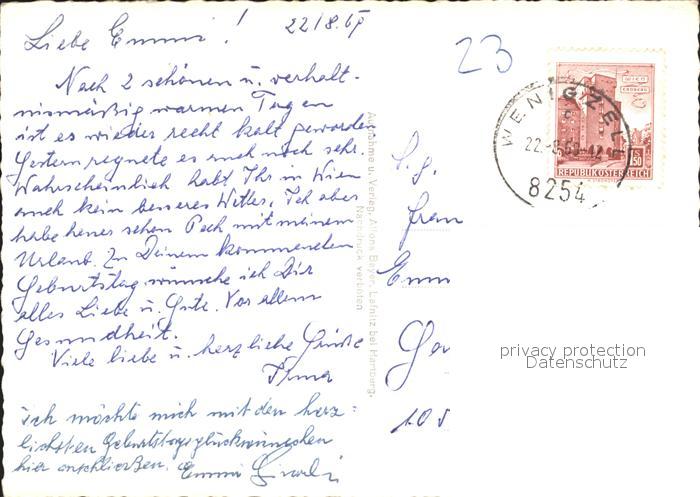 22/8.69
Liebe Emmi!
Nach 2 schönen u. verhält-
nismäßig warmen Tagen
ist es wieder recht kalt geworden
Gestern regnete es auch noch sehr.
Wahrscheinlich habt Ihr in Wien
auch kein besseres Wetter. Ich aber
habe heuer schon Pech mit meinem
Urlaub. Zu Deinem kommenden
Geburtstag wünsche ich Dir
alles Liebe u. Gute. Vor allem
Gesundheit.
Viele liebe u. herzliche Grüße
Irma
Ich möchte mich mit den herz-
lichsten Geburtstagsglückwünschen
hier anschließen.
Emmi
Aufnahme u. Verlag, Alfons Bayer, Lafnitz bei Hartberg,
Nachdruck verboten
23
WENIGZELL
8254
WIEN
ERDBERG
1.50
REPUBLIK ÖSTERREICH
Frau
privacy protection
Datenschutz